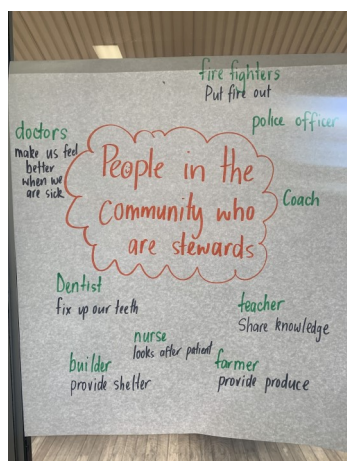 fire fighters
Put fire out
police officer
doctors
make us feel
better
when we
are sick
People in the
community who
are stewards
Coach
Dentist
fix up our teeth
teacher
Share knowledge
nurse
looks after patient
builder
provide shelter
farmer
provide produce